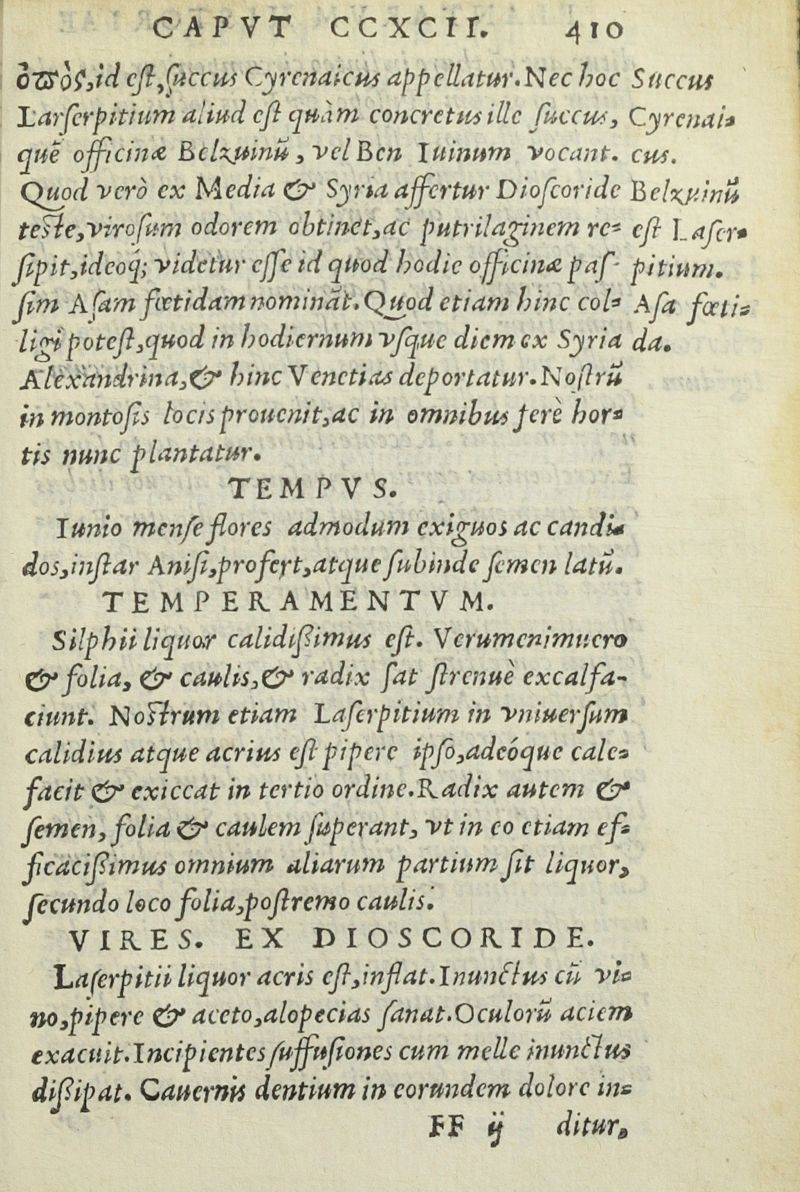 CAPVT CCXCII. 410
ὀπὸς, id est, succus Cyrenaicus appellatur. Nec hoc
Larserpitium aliud est quàm concretus ille succus,
quē officinæ Belzuinū, vel Ben Iuinum vocant.
Quod verò ex Media & Syria affertur Dioscoride
teste, virosum odorem obtinet, ac putrilaginem re-
sipit, ideoq; videtur esse id quod hodie officinæ pas-
sim Asam fœtidam nomināt. Quod etiam hinc col-
ligi potest, quod in hodiernum vsque diem ex Syria
Alexandrina, & hinc Venetias deportatur. Nostrū
in montosis locis prouenit, ac in omnibus ferè hor-
tis nunc plantatur.
Succus
Cyrenai-
cus.
Belzuinū
est Laser-
pitium.
Asa fœti-
da.
TEMPVS.
Iunio mense flores admodum exiguos ac candi-
dos, instar Anisi, profert, atque subinde semen latū.
TEMPERAMENTVM.
Silphii liquor calidissimus est. Verumenimuero
& folia, & caulis, & radix sat strenuè excalfa-
ciunt. Nostrum etiam Laserpitium in vniuersum
calidius atque acrius est pipere ipso, adeóque cale-
facit & exiccat in tertio ordine. Radix autem &
semen, folia & caulem superant, vt in eo etiam ef-
ficacissimus omnium aliarum partium sit liquor,
secundo loco folia, postremo caulis.
VIRES. EX DIOSCORIDE.
Laserpitii liquor acris est, inflat. Inunctus cū vi-
no, pipere & aceto, alopecias sanat. Oculorū aciem
exacuit. Incipientes suffusiones cum melle inunctus
dissipat. Cauernis dentium in eorundem dolore in-
FF ij ditur,